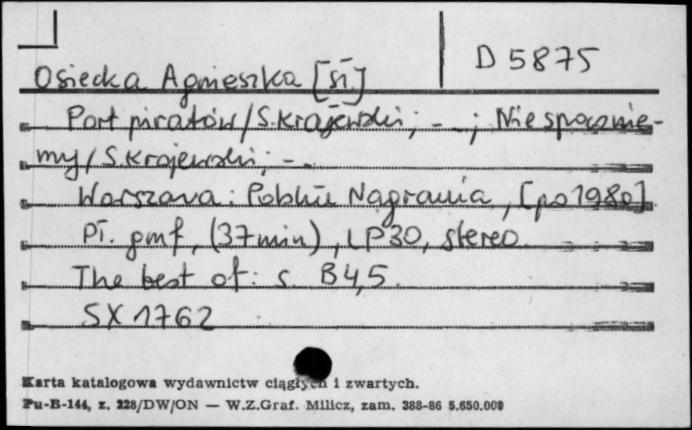 D 5875
Osiecka Agnieszka [sł.]
Port piratów / S. Krajewski ; - . ; Nie spocznie-
my / S. Krajewski ; - .
Warszawa : Polskie Nagrania , [po 1980]
Pł. gmf , (37 min) , LP30, stereo.
The best of : s. B 4,5.
SX 1762
Karta katalogowa wydawnictw ciągłych i zwartych.
Pu-B-144, z. 228/DW/ON — W.Z.Graf. Milicz, zam. 388-86 5.650.000